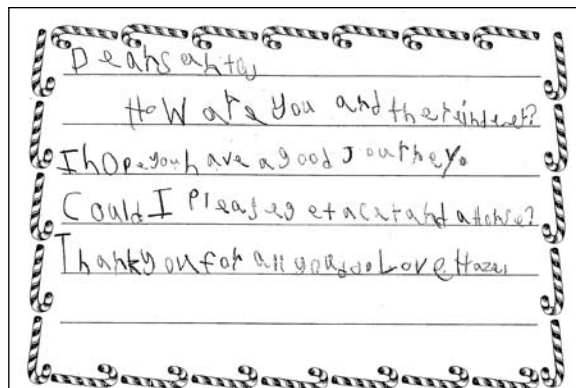 Dear Santa
How are you and the reindeer?
I hope you have a good Journey.
Could I Please get a cat and a Horse?
Thank you for all you do Love Hazel